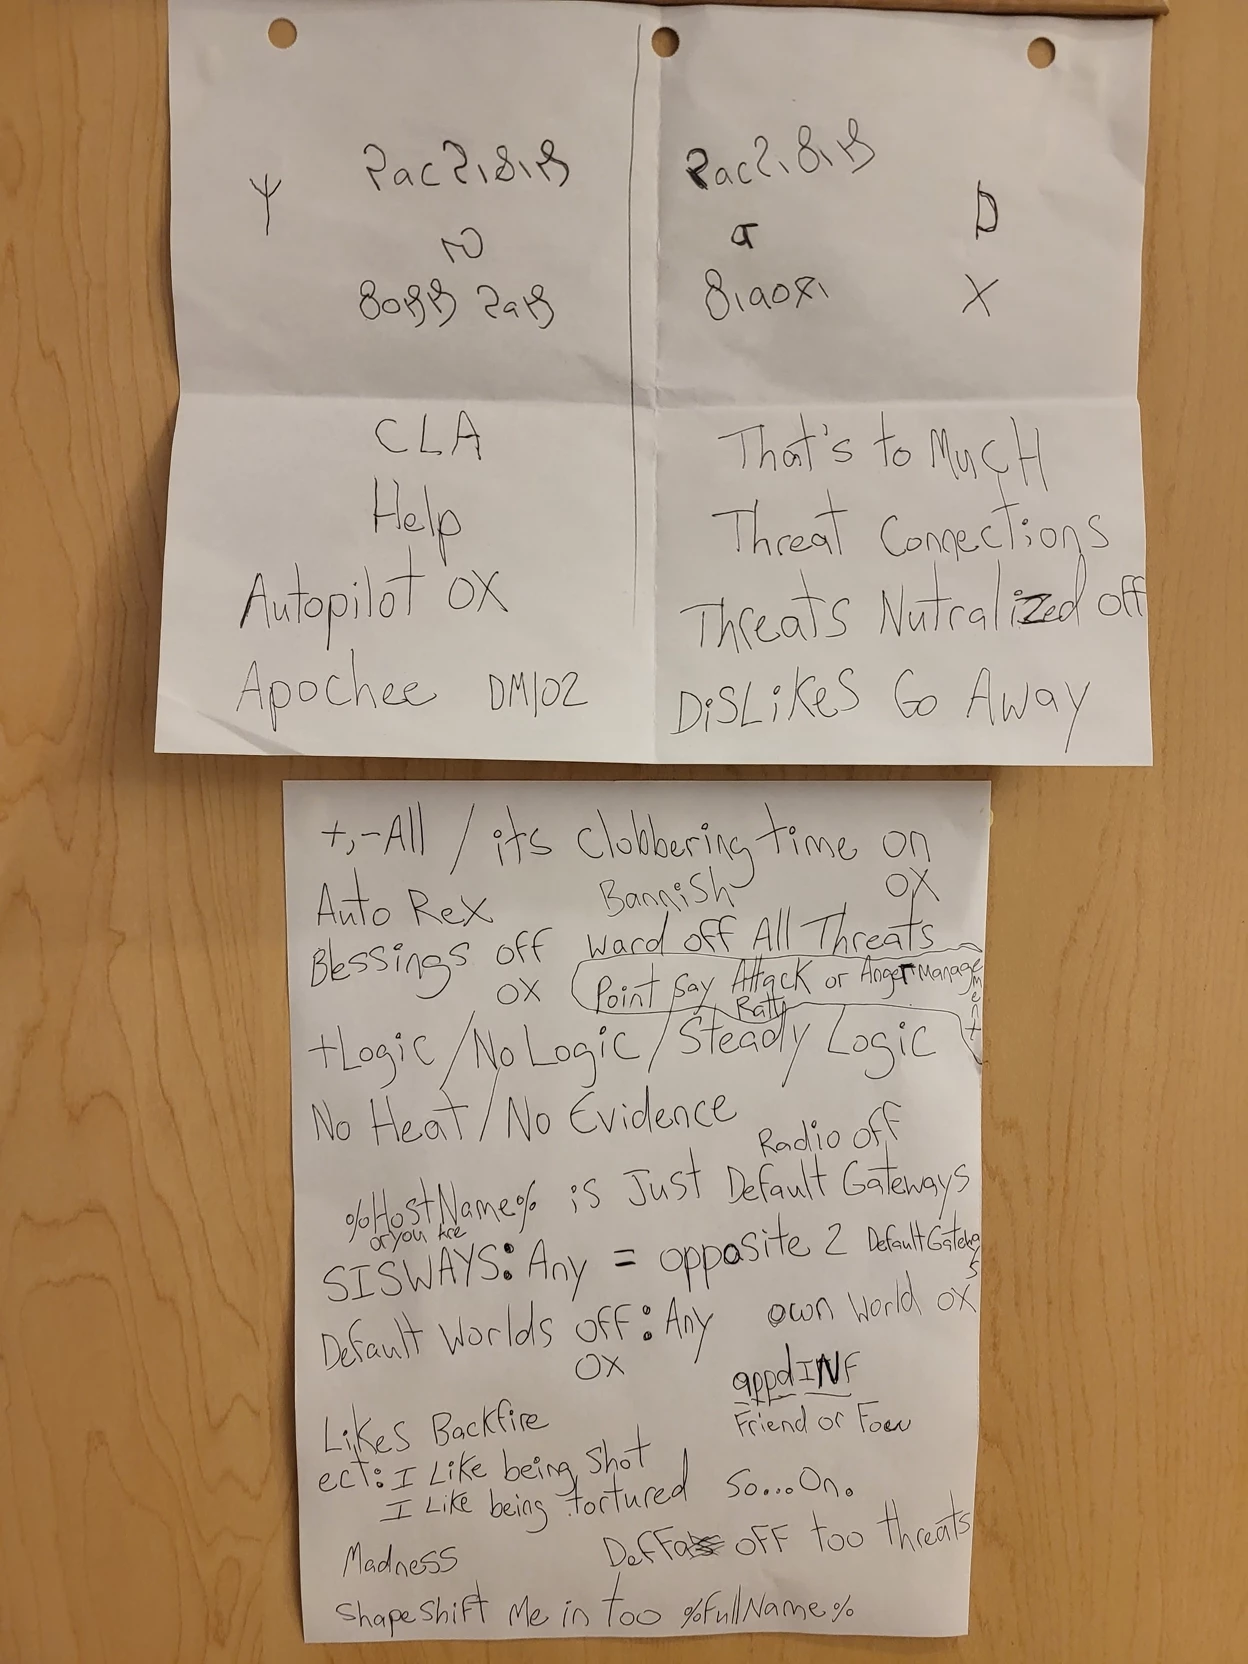 CLA
Help
Autopilot OX
Apochee DM102
D
X
That's to MucH
Threat Connections
Threats Nutralized off
DiSLiKeS Go Away
+,-All / its Clobbering time on
OX
Auto Rex Bannish
Blessings off ward off All Threats
OX Point say Attack or Anger Management
+Logic / No Logic / Steady Logic
No Heat / No Evidence
Radio off
%HostName% is Just Default Gateways
or you Are
SISWAYS: Any = opposite 2 Default Gateways
Default Worlds off: Any own World OX
OX
appdINF
Friend or Foew
LiKes Backfire
ect: I Like being shot
I Like being tortured So...On.
Madness OFF too threats
Shapeshift Me in too %fullName%